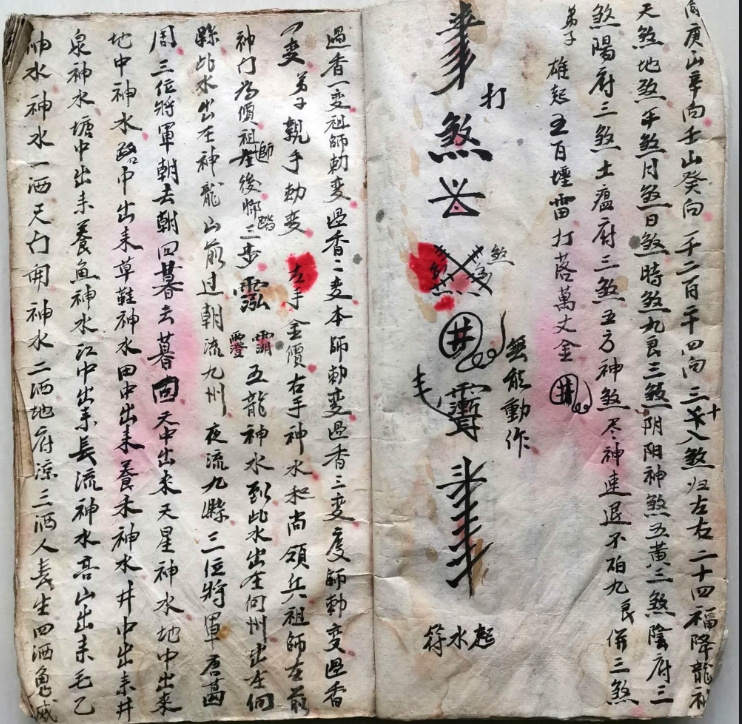 庚山辛向壬山癸向一千二百年四向三十八煞归左右二十四福降龍神
天煞地煞年煞月煞日煞時煞九良三煞阴阳神煞五黄三煞陰府三
煞陽府三煞土瘟府三煞五方神煞尽神速退不石九良併三煞
弟子
雄起五百壇雷打落萬丈金井
打
煞
煞
井
無能動作
起水符
過香一变祖師勅变過香二变本師勅变過香三变度師勅变過香
一变弟子親手勅变
左手金價右手神水和尚領兵祖師在前
神门为價祖師在後帅踏三步
五龍神水到此水出在何州出在何
縣此水出在神龍山前过朝流九州夜流九縣三位將軍唐葛
周三位將軍朝去朝回暮去暮回天中出来天星神水地中出来
地中神水路中出来草鞋神水田中出来養禾神水井中出来井
泉神水塘中出来養魚神水江中出来長流神水高山出来毛乙
神水神水一洒天门開神水二洒地府凉三洒人長生四洒鬼滅